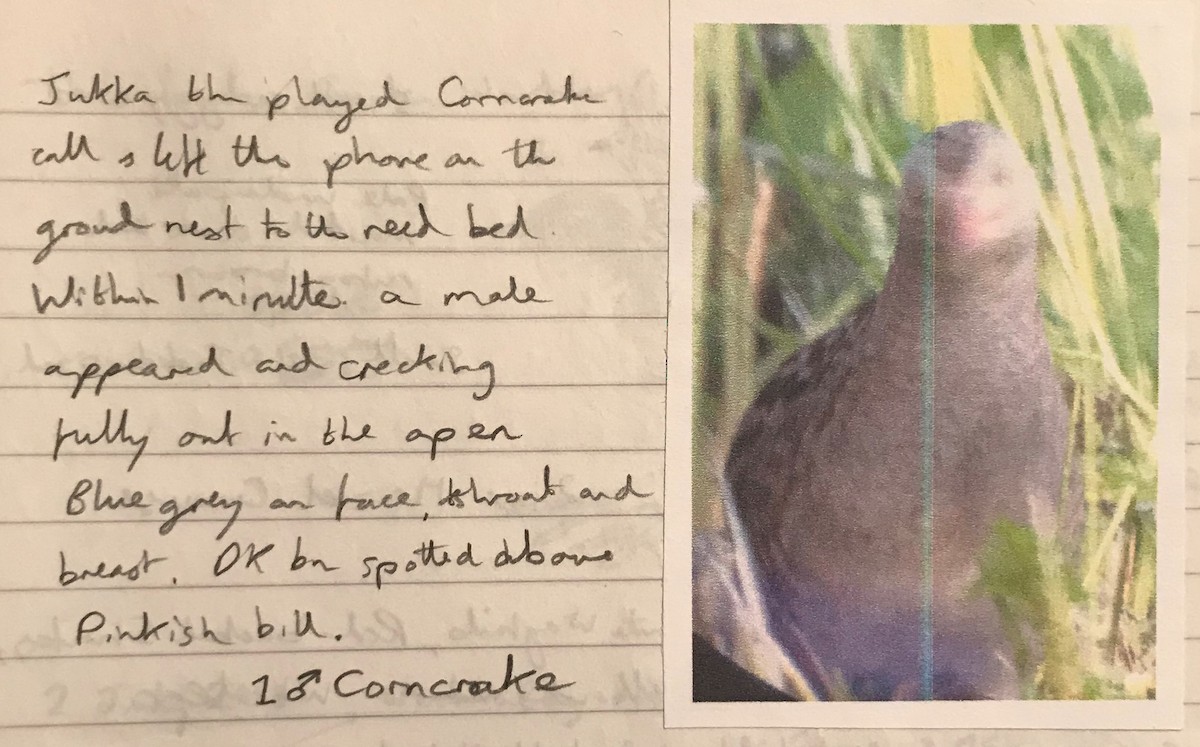 Jukka thn played Corncrake
call & left the phone on the
ground next to the reed bed.
Within 1 minute a male
appeared and crecking
fully out in the open
Blue grey on face, throat and
breast. DK bn spotted above
Pinkish bill.
1 ♂ Corncrake